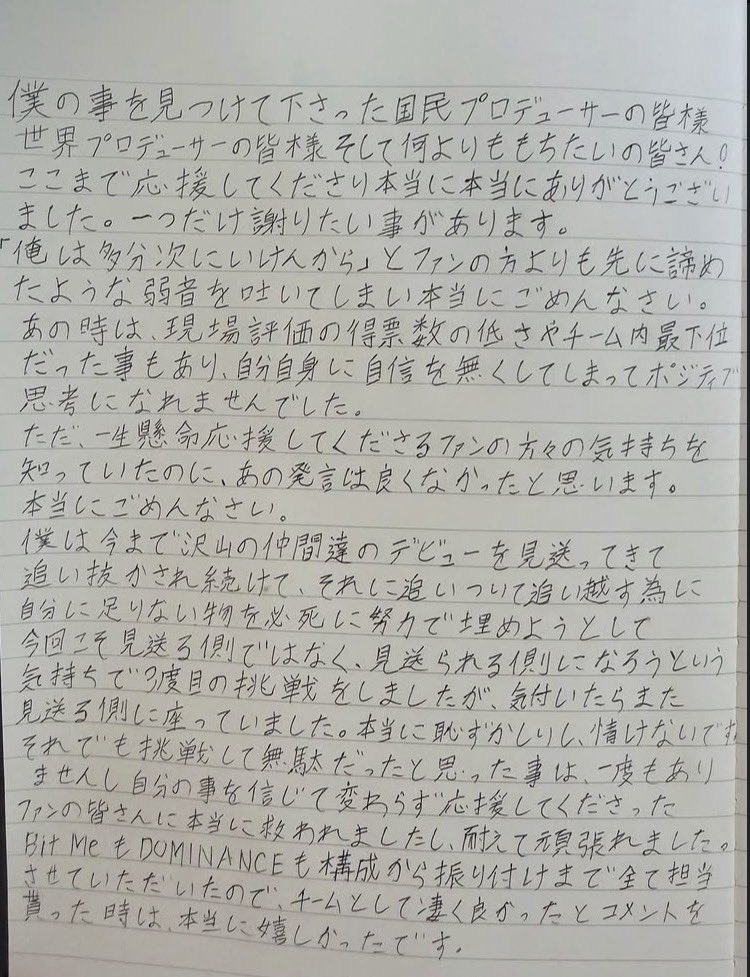 僕の事を見つけて下さった国民プロデューサーの皆様
世界プロデューサーの皆様そして何よりももちたいの皆さん!
ここまで応援してくださり本当に本当にありがとうござい
ました。一つだけ謝りたい事があります。
「俺は多分次にいけんから」とファンの方よりも先に諦め
たような弱音を吐いてしまい本当にごめんなさい。
あの時は、現場評価の得票数の低さやチーム内最下位
だった事もあり、自分自身に自信を無くしてしまってポジティブ
思考になれませんでした。
ただ、一生懸命応援してくださるファンの方々の気持ちを
知っていたのに、あの発言は良くなかったと思います。
本当にごめんなさい。
僕は今まで沢山の仲間達のデビューを見送ってきて
追い抜かされ続けて、それに追いついて追い越す為に
自分に足りない物を必死に努力で埋めようとして
今回こそ見送る側ではなく、見送られる側になろうという
気持ちで3度目の挑戦をしましたが、気付いたらまた
見送る側に座っていました。本当に恥ずかしいし、情けないです
それでも挑戦して無駄だったと思った事は、一度もあり
ませんし自分の事を信じて変わらず応援してくださった
ファンの皆さんに本当に救われましたし、耐えて頑張れました。
Bit MeもDOMINANCEも構成から振り付けまで全て担当
させていただいたので、チームとして凄く良かったとコメントを
貰った時は、本当に嬉しかったです。